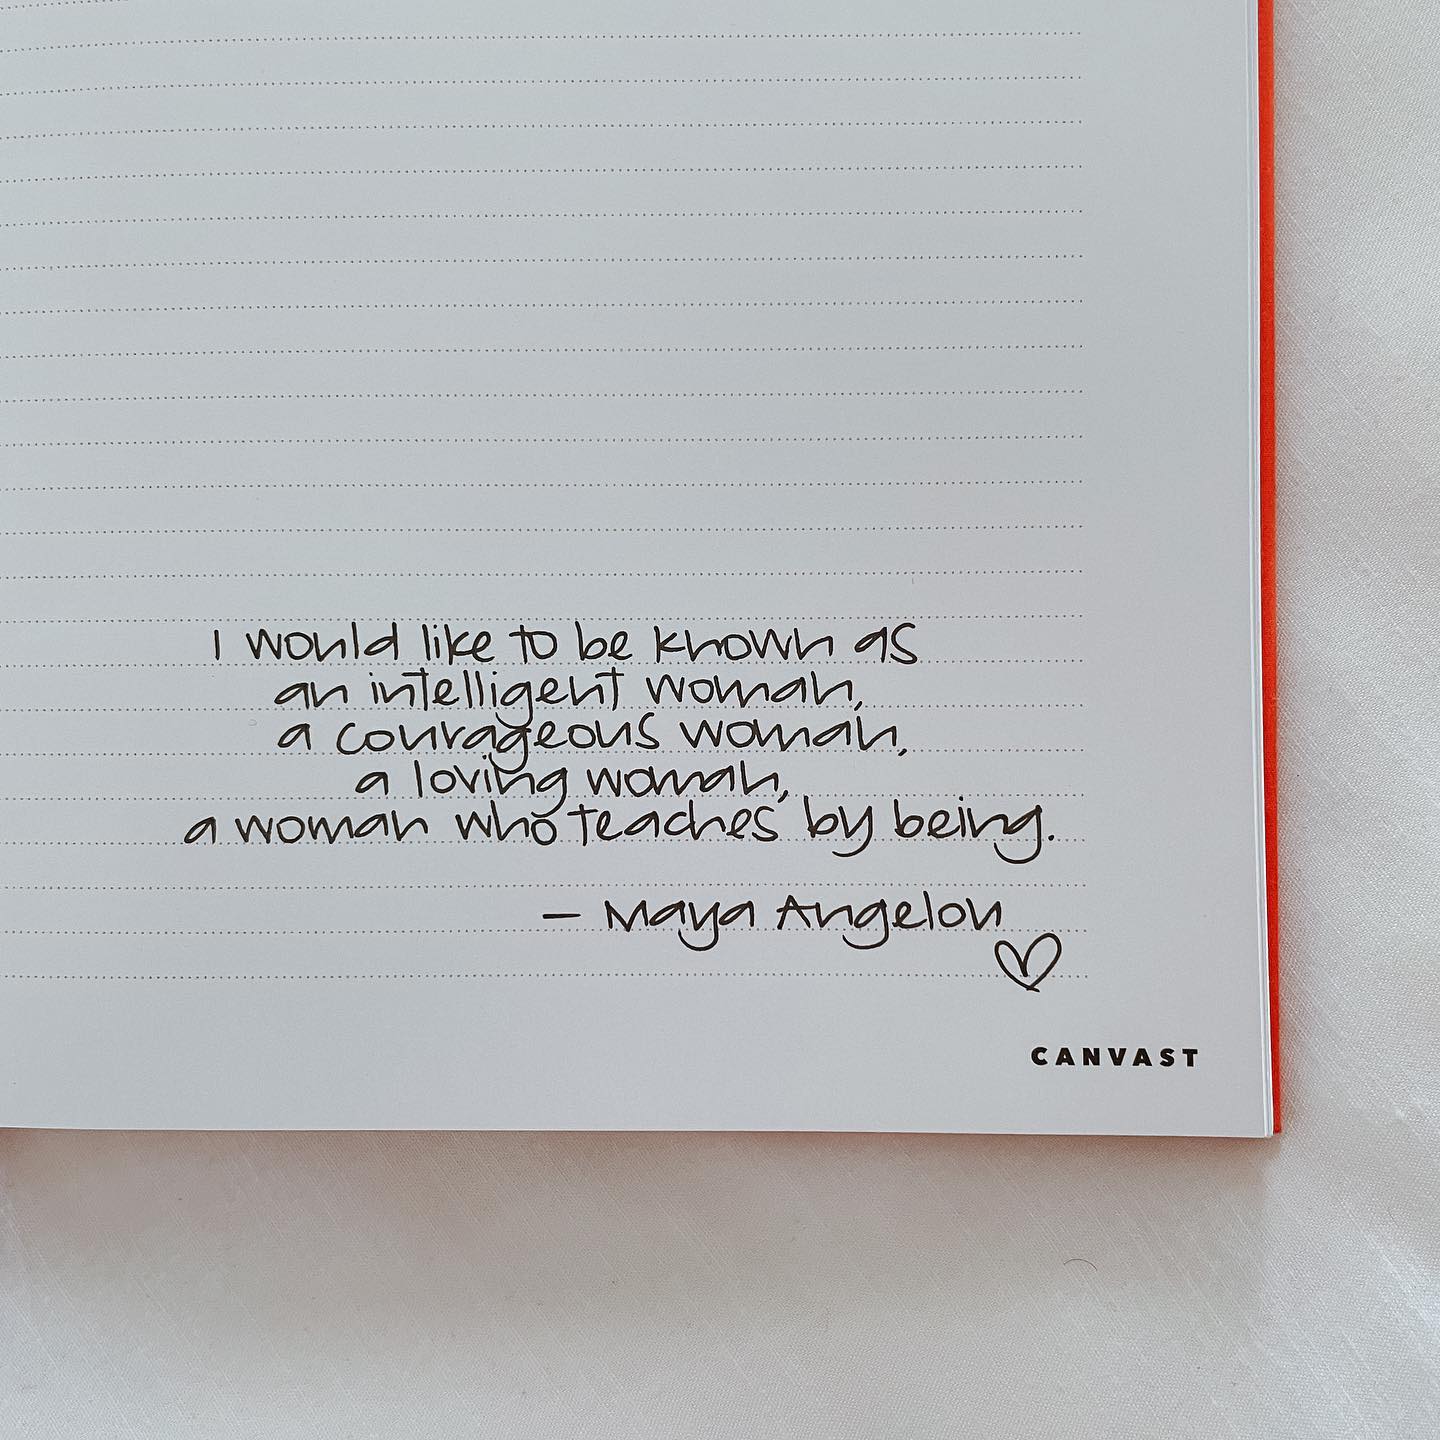 I would like to be known as
an intelligent woman,
a courageous woman,
a loving woman,
a woman who teaches by being.
— Maya Angelou
CANVAST